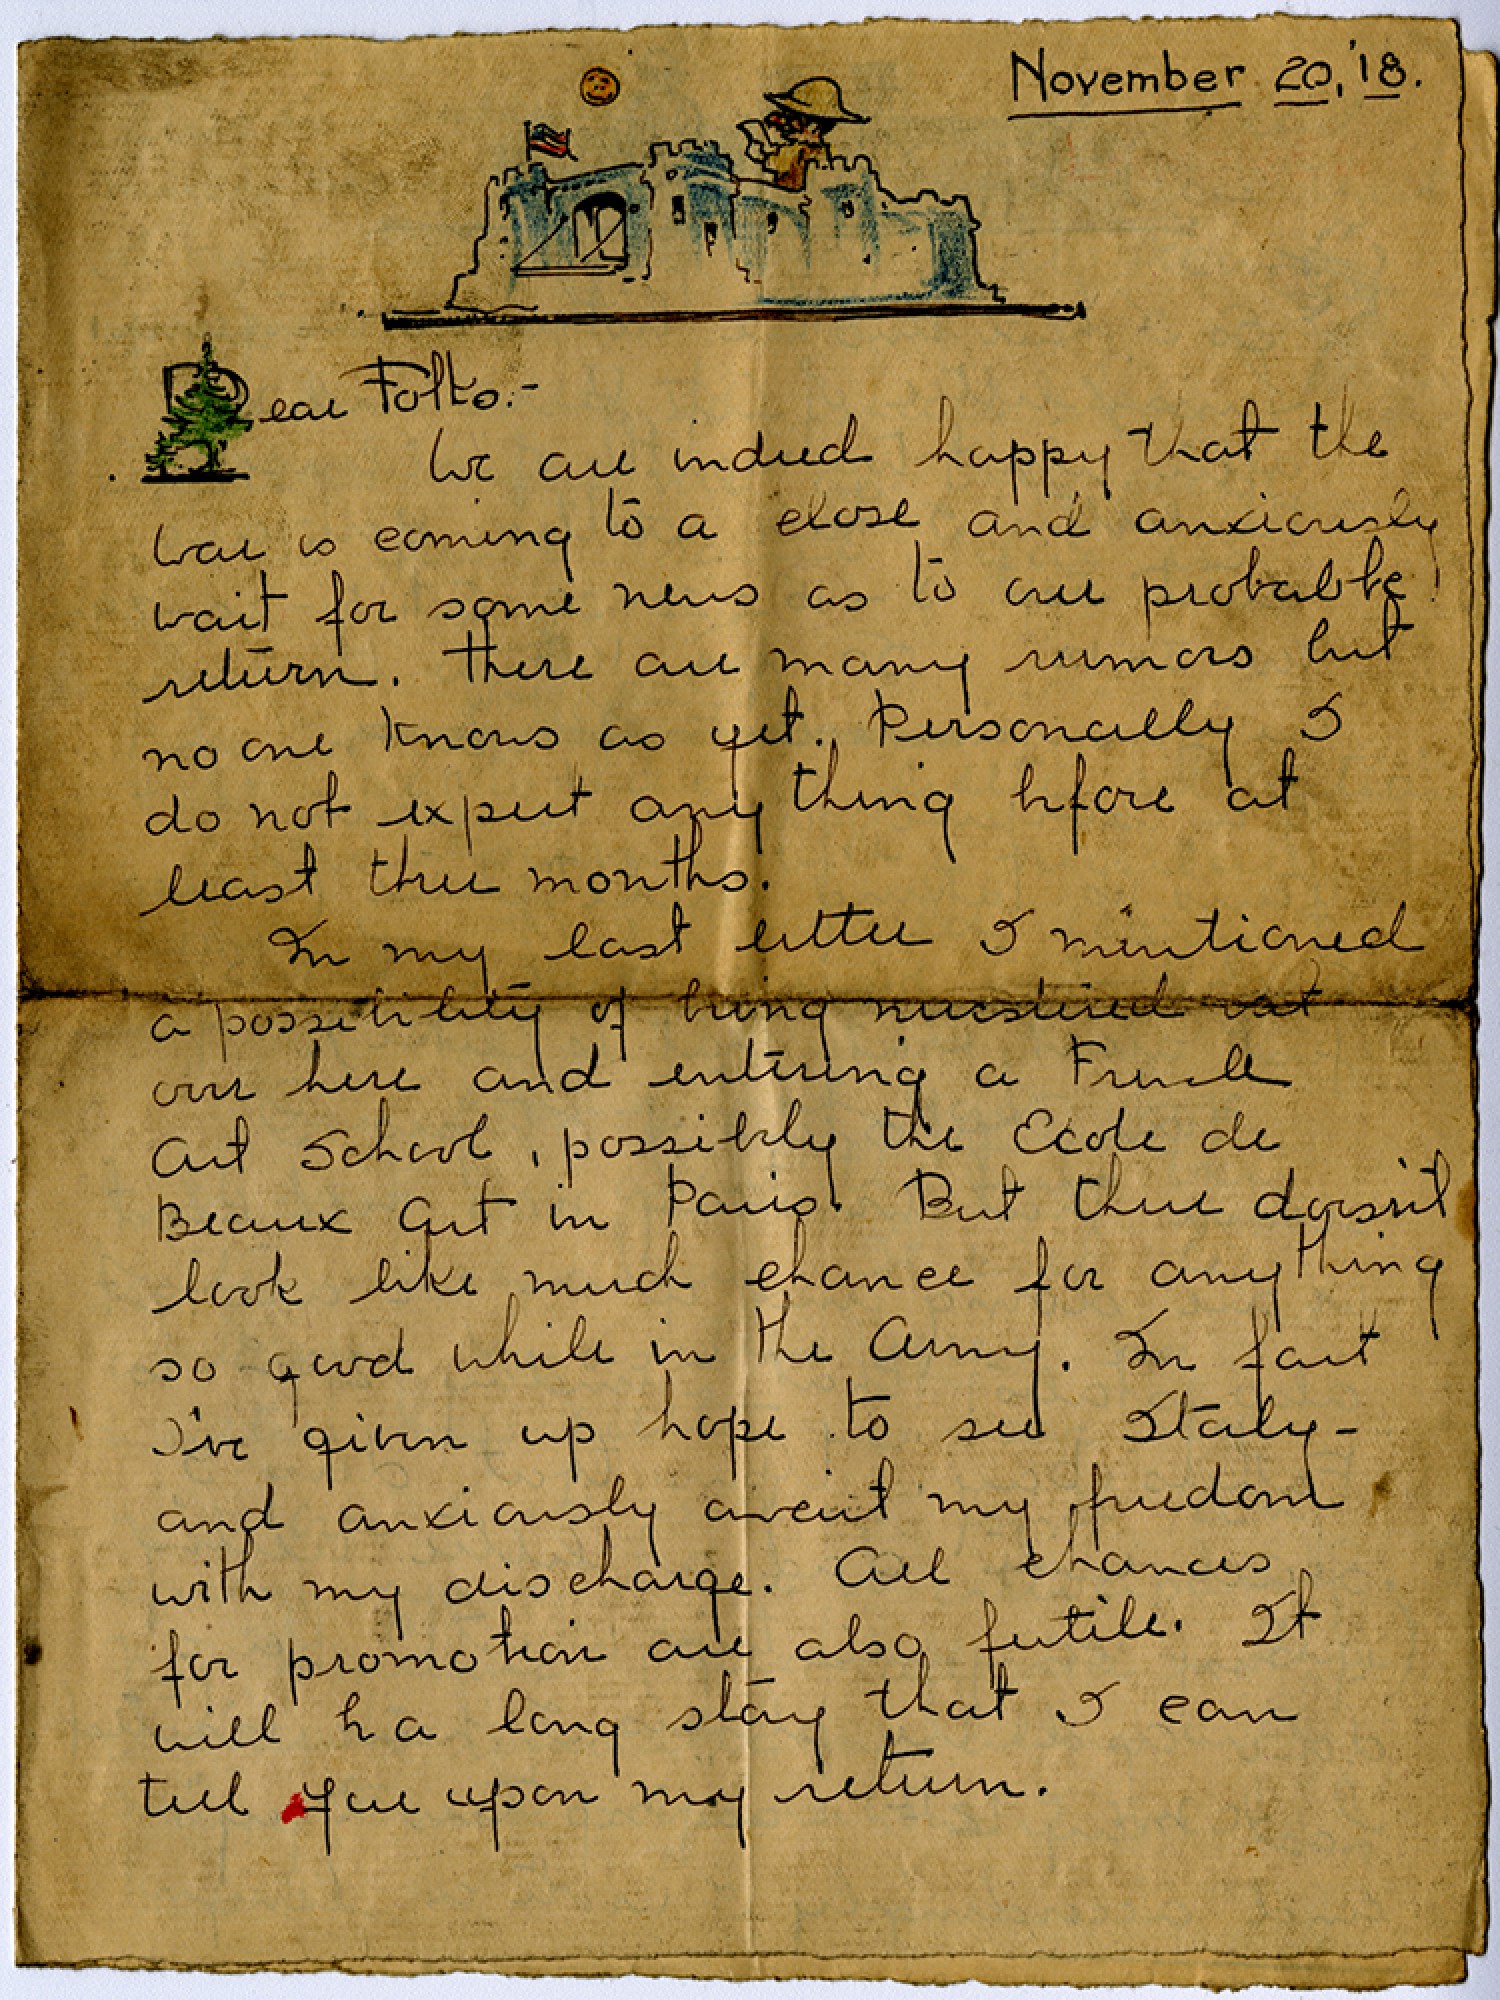 November 20, '18.
Dear Folks:-
We are indeed happy that the
war is coming to a close and anxiously
wait for some news as to our probable
return. There are many rumors but
no one knows as yet. Personally I
do not expect anything before at
least three months.
In my last letter I mentioned
a possibility of being mustered out
over here and entering a French
Art School, possibly the Ecole de
Beaux Art in Paris. But there doesn't
look like much chance for anything
so good while in the Army. In fact
I've given up hope to see Italy-
and anxiously await my freedom
with my discharge. All chances
for promotion are also futile. It
will be a long story that I can
tell you upon my return.